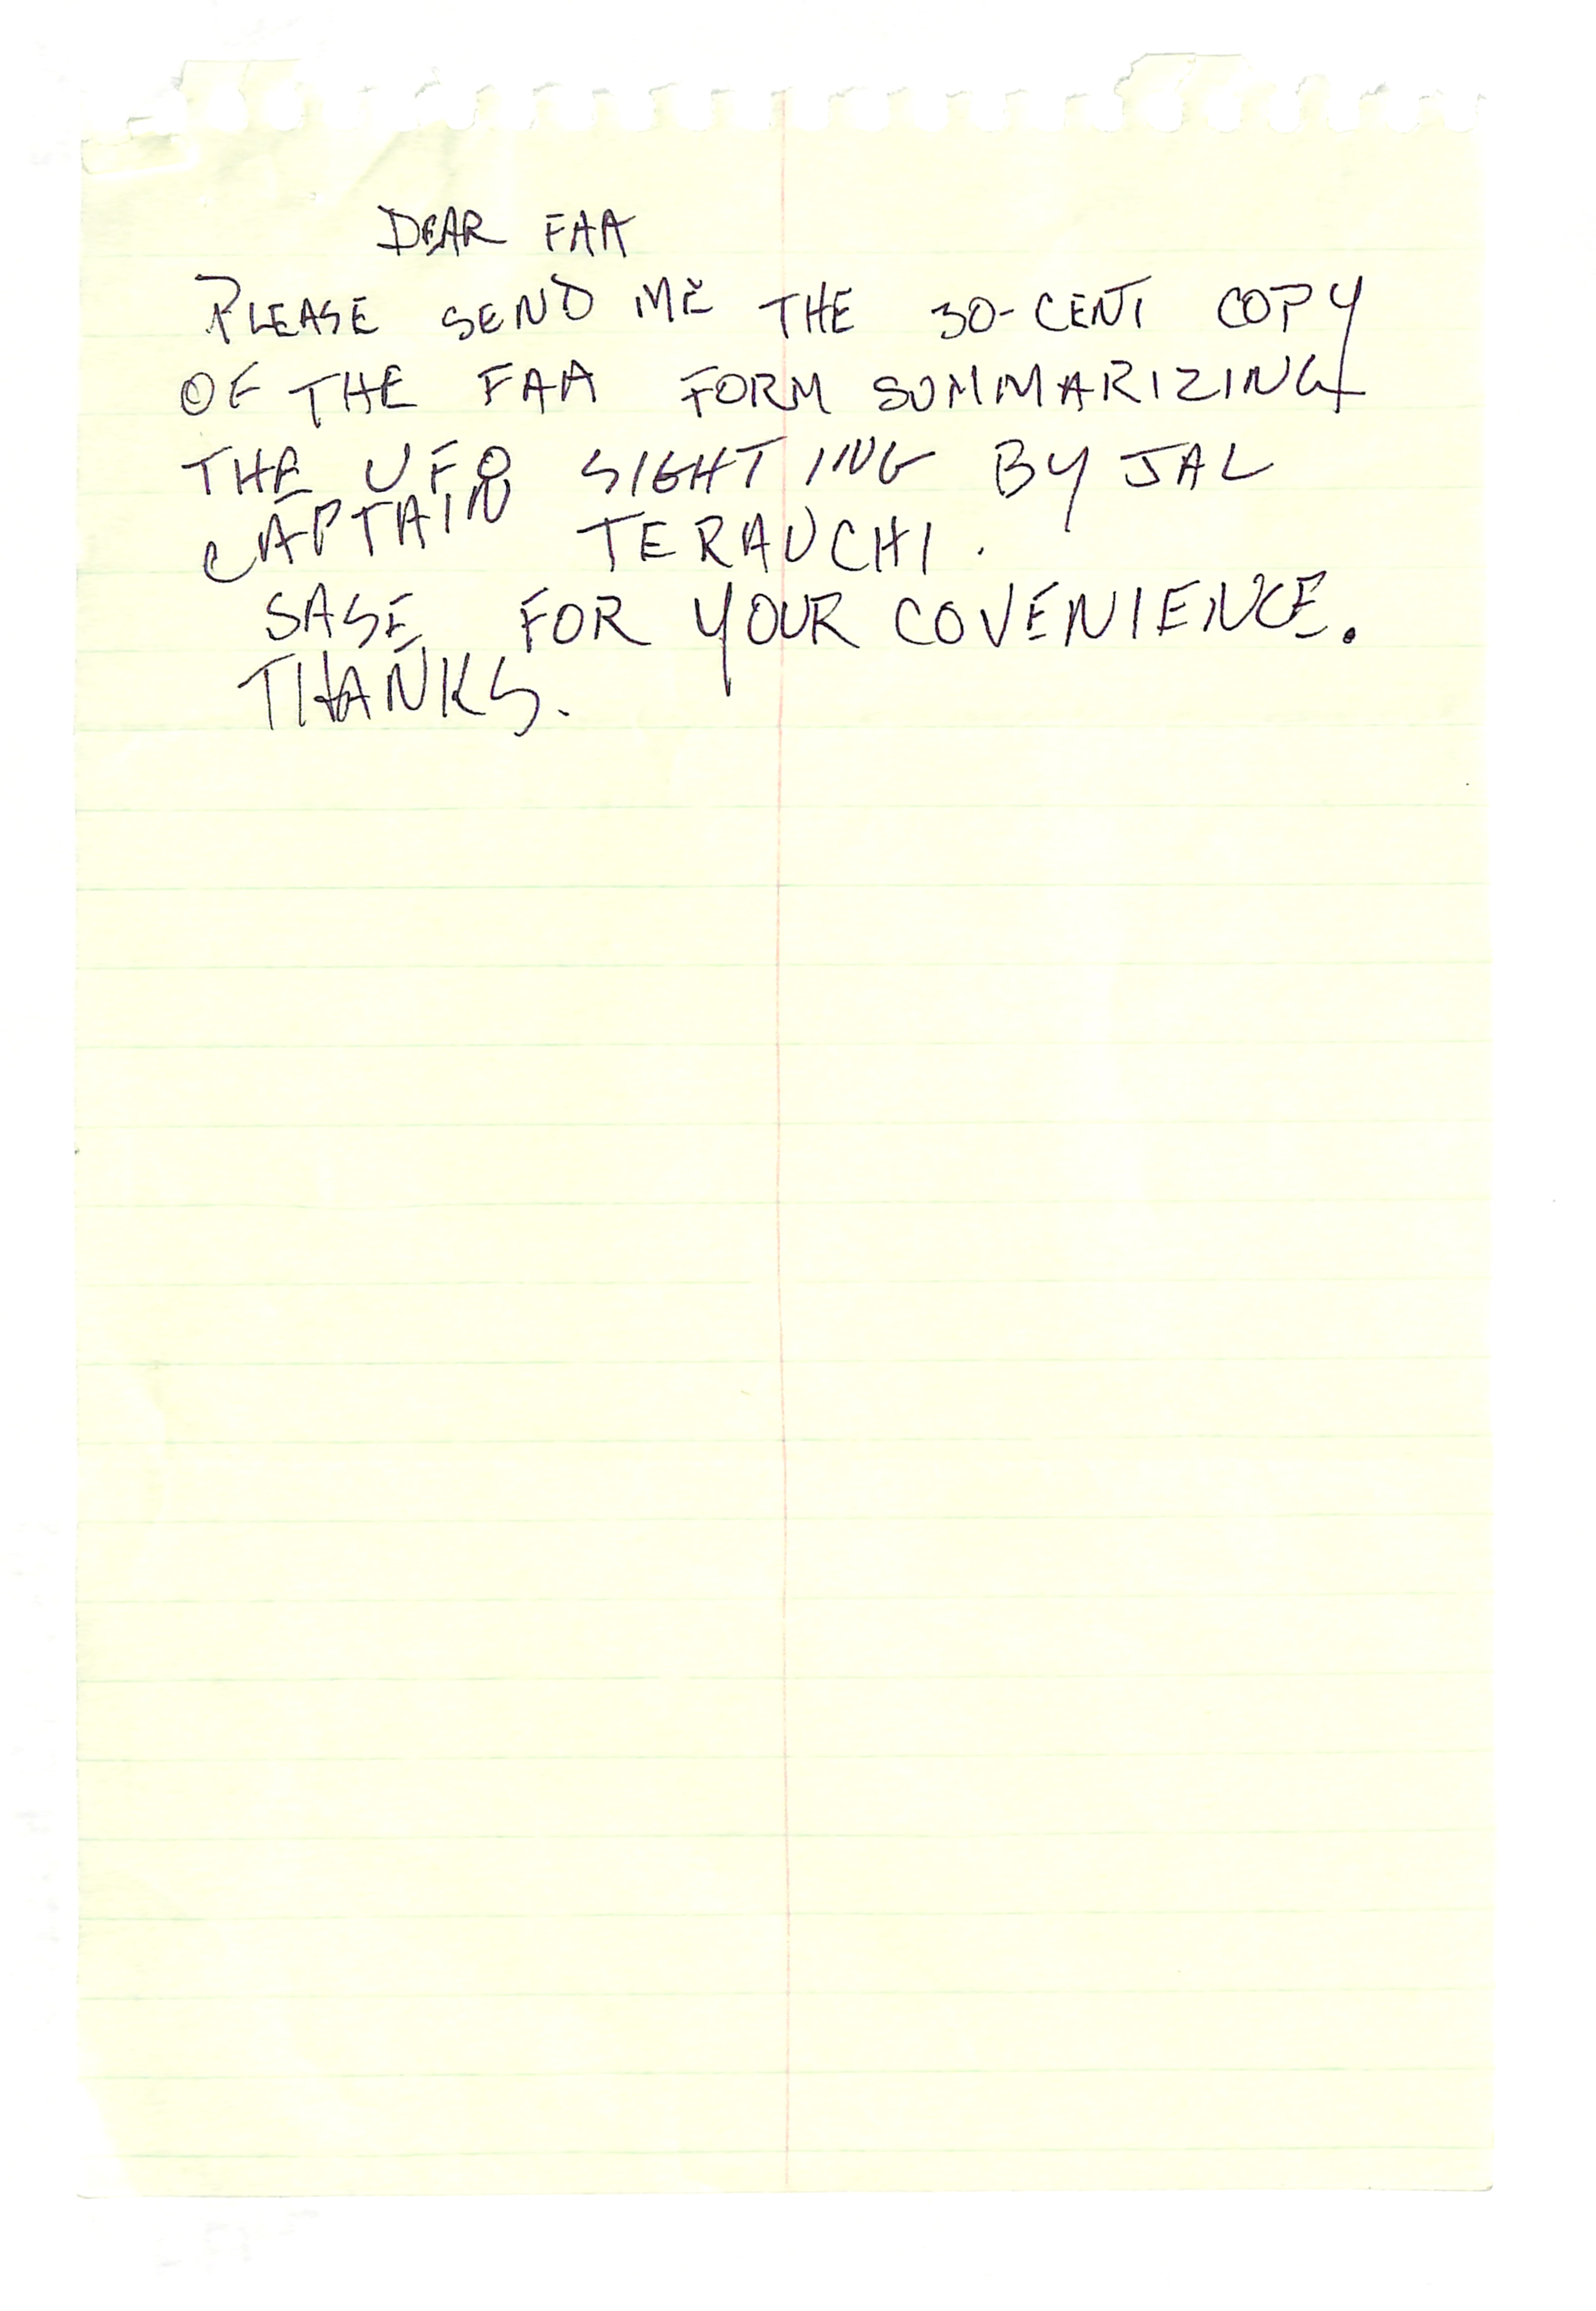 DEAR FAA
PLEASE SEND ME THE 30-CENT COPY
OF THE FAA FORM SUMMARIZING
THE UFO SIGHTING BY JAL
CAPTAIN TERAUCHI.
SASE FOR YOUR COVENIENCE.
THANKS.